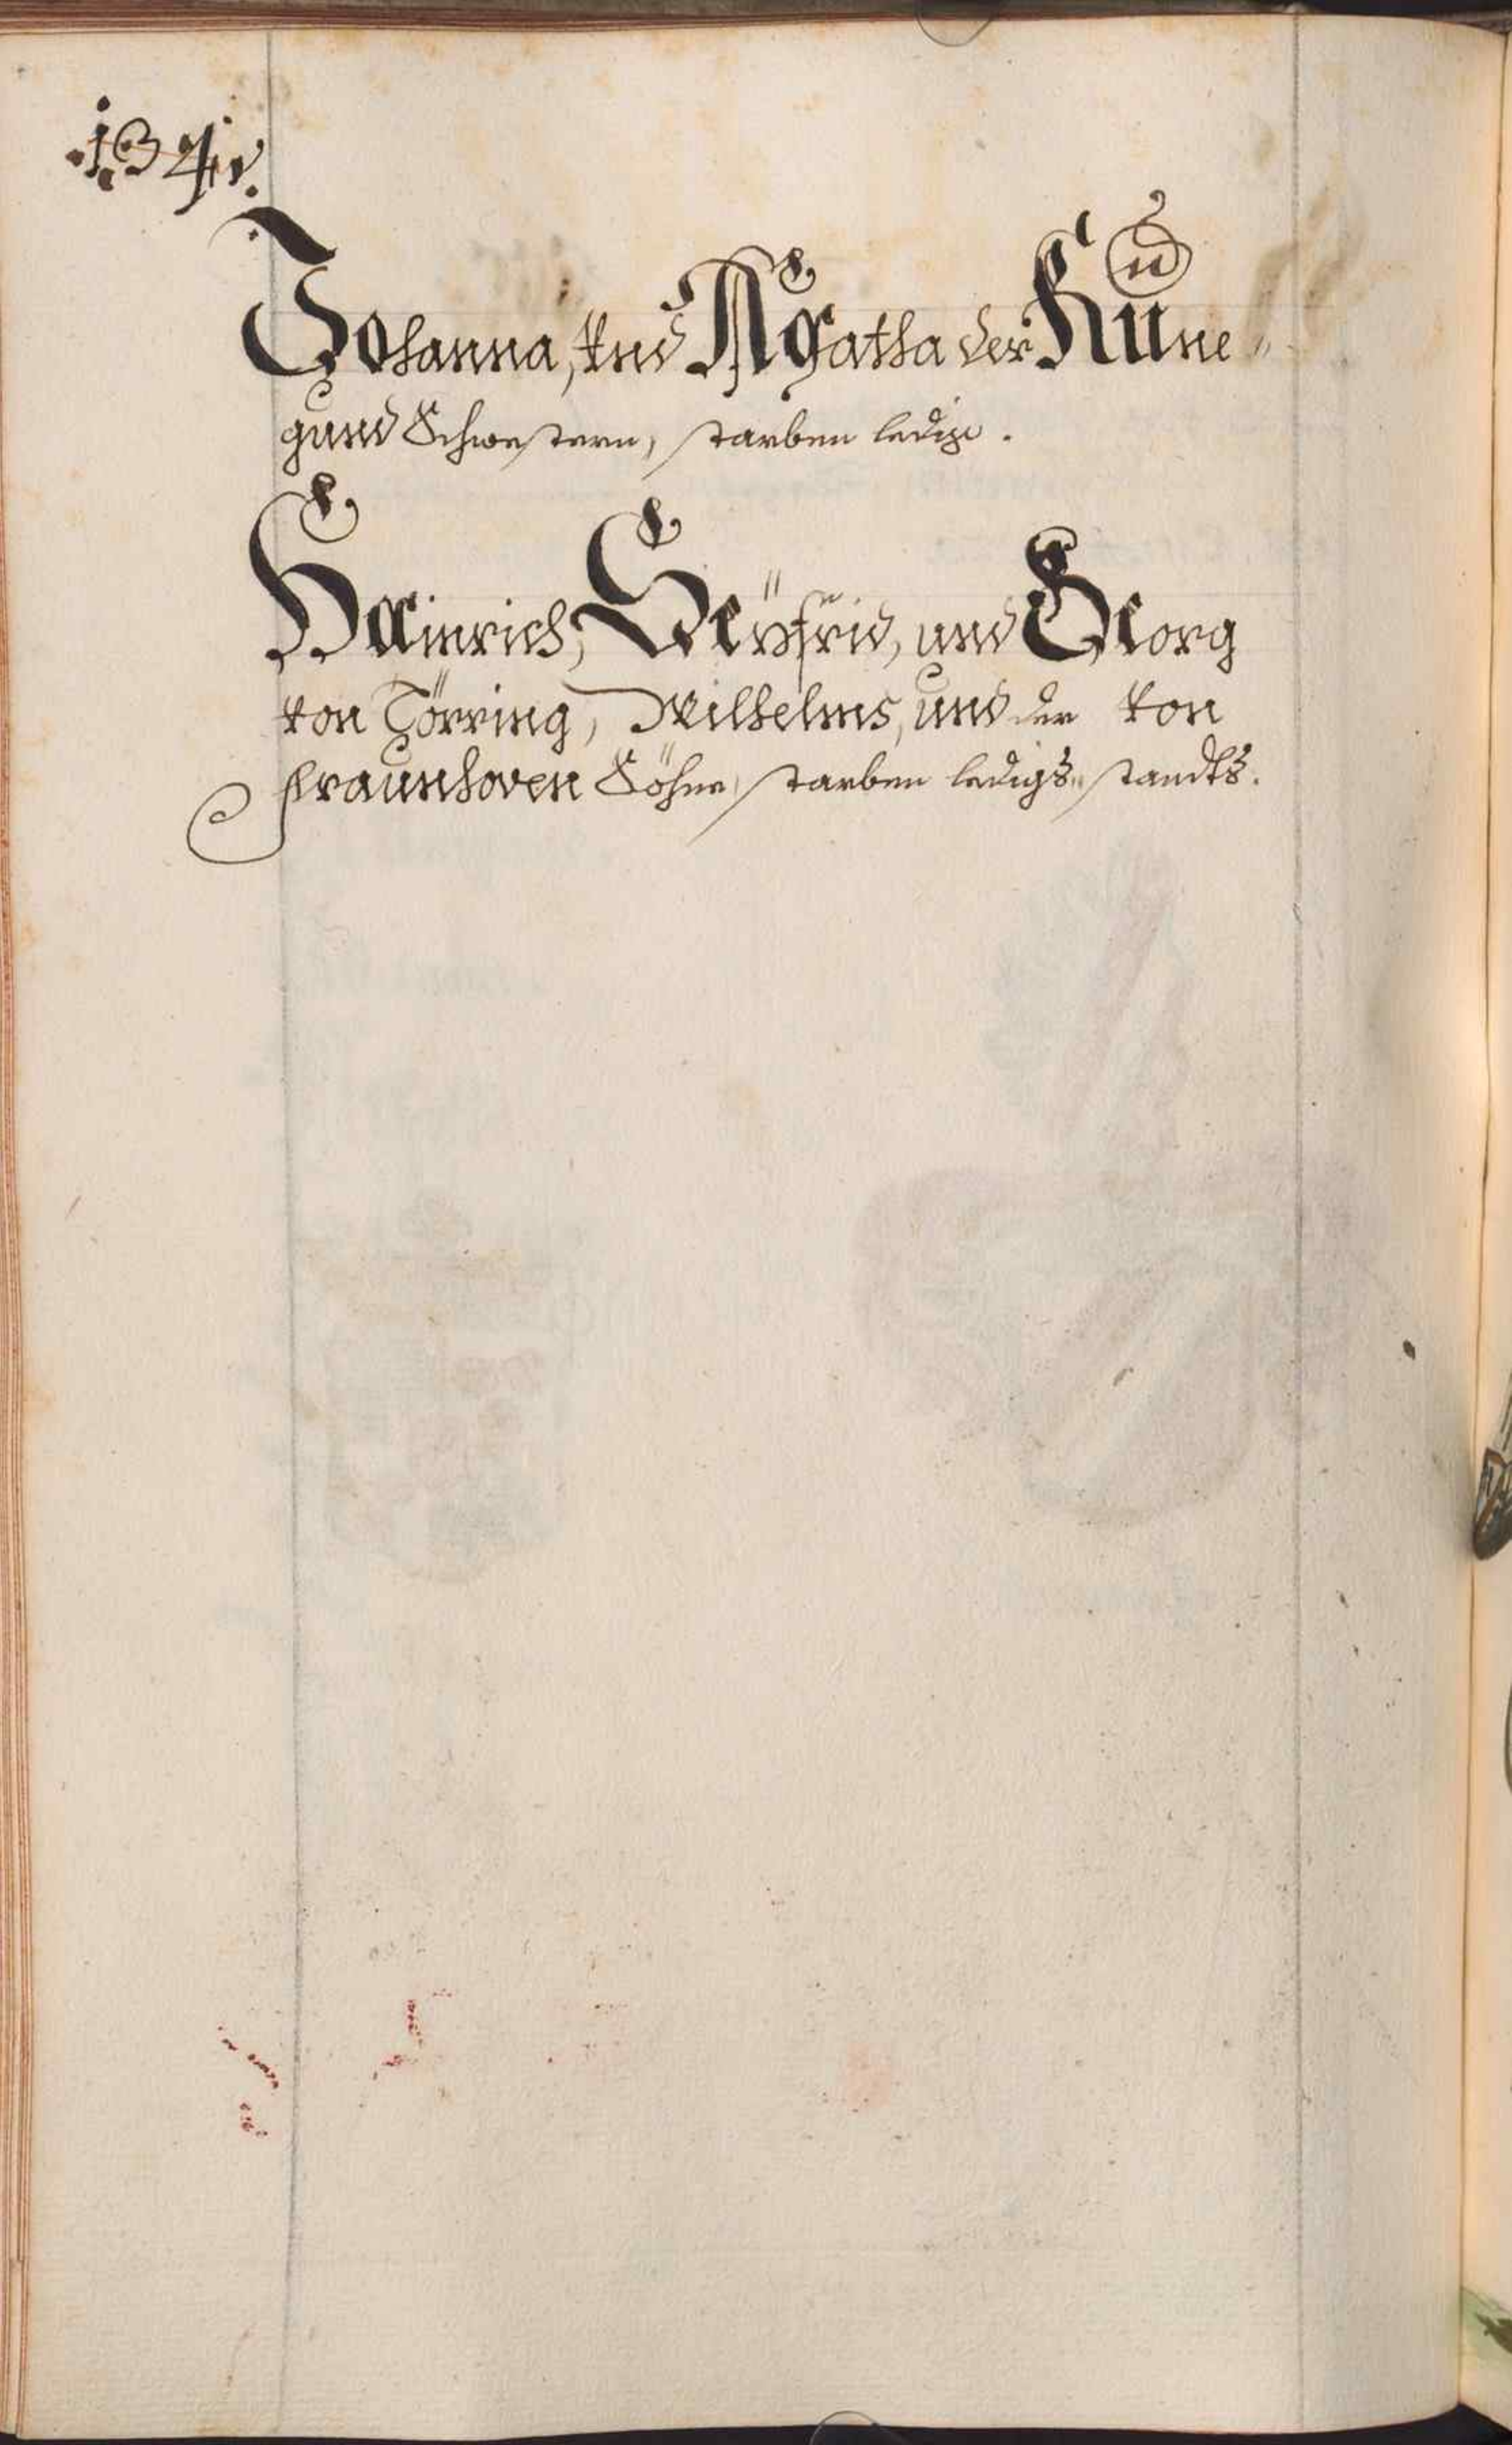 .134v.
Johanna, vnd Agatha der Küne„
gund Schwestern, starben ledig.
Hainrich, Seÿfrid, und Georg
von Törring, Wilhelms, und der von
Fraunhoven Söhne, starben ledigs„ standts.